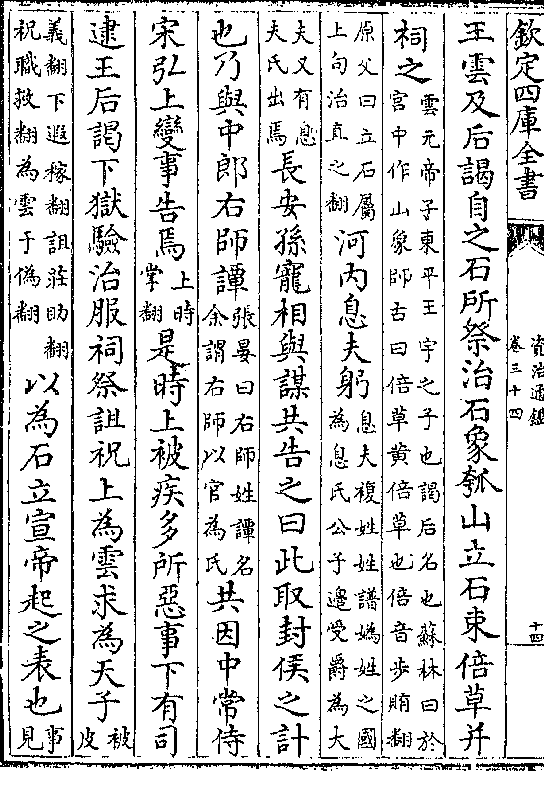 欽定四庫全書
資治通鑑
卷三十四
十四
王雲及后謁自之石所祭治石象瓠山立石束倍草并
祠之雲元帝子東平王宇之子也謁后名也蘇林曰於
宫中作山象師古曰倍草黄倍草也倍音步賄翻
原父曰立石屬
上句治直之翻河内息夫躬息夫複姓姓譜媯姓之國
為息氏公子邊受爵為大
夫又有息
夫氏出焉長安孫寵相與謀共告之曰此取封侯之計
也乃與中郎右師譚張晏曰右師姓譚名
余謂右師以官為氏共因中常侍
宋弘上變事告焉上時
掌翻是時上被疾多所惡事下有司
逮王后謁下獄驗治服祠祭詛祝上為雲求為天子被
皮
義翻下遐稼翻詛莊助翻
祝職救翻為雲于偽翻以為石立宣帝起之表也事
見